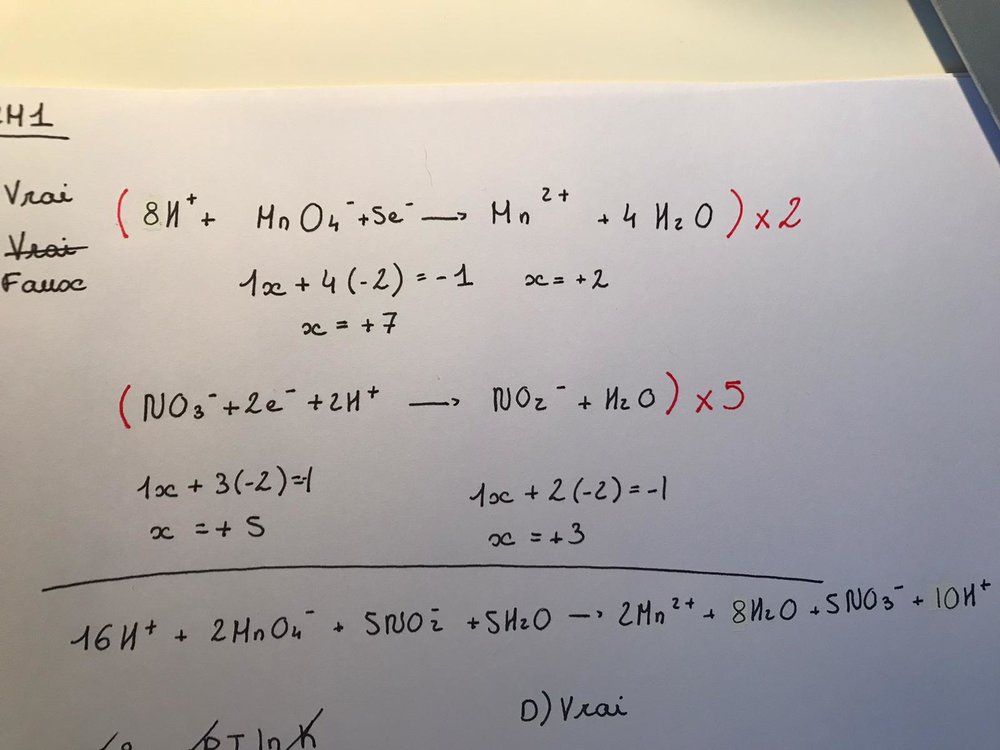 H1
Vrai
Vrai
Faux
(8H⁺ + MnO₄⁻ + 5e⁻ → Mn²⁺ + 4 H₂O) × 2
1x + 4(-2) = -1 x = +2
x = +7
(NO₃⁻ + 2e⁻ + 2H⁺ → NO₂⁻ + H₂O) × 5
1x + 3(-2) = -1 1x + 2(-2) = -1
x = + 5 x = +3
16H⁺ + 2MnO₄⁻ + 5NO₂⁻ + 5H₂O → 2Mn²⁺ + 8H₂O + 5NO₃⁻ + 10H⁺
D) Vrai